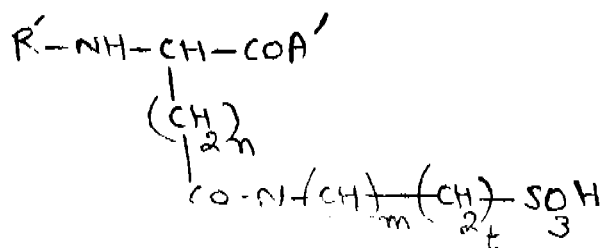 R′-NH-CH-COA′
(CH2)n
CO-N-(CH)m-(CH2)t-SO3H